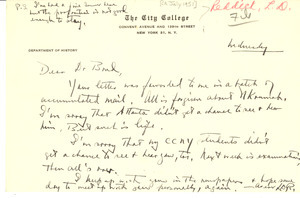 The City College
CONVENT AVENUE AND 139TH STREET
NEW YORK 31, N. Y.
DEPARTMENT OF HISTORY
Reddick, L.D.
Wednesday
Dear Dr. Bond,
Your letter was forwarded to me in a batch of
accumulated mail. All is forgiven about
I'm sorry that Atlanta didn't get a chance to see + hear
him, But such is life.
I'm sorry that my CCNY students didn't
get a chance to see + hear you, too. Next week is examination
then all's over.
I keep up with you in the newspapers + hope some
day to meet up with you personally, again.